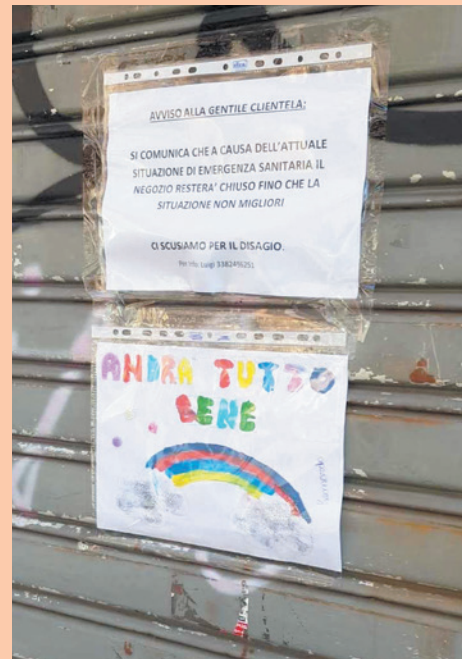 AVVISO ALLA GENTILE CLIENTELA:
SI COMUNICA CHE A CAUSA DELL'ATTUALE
SITUAZIONE DI EMERGENZA SANITARIA IL
NEGOZIO RESTERA' CHIUSO FINO CHE LA
SITUAZIONE NON MIGLIORI
CI SCUSIAMO PER IL DISAGIO.
Per info: Luigi
ANDRÀ TUTTO
BENE